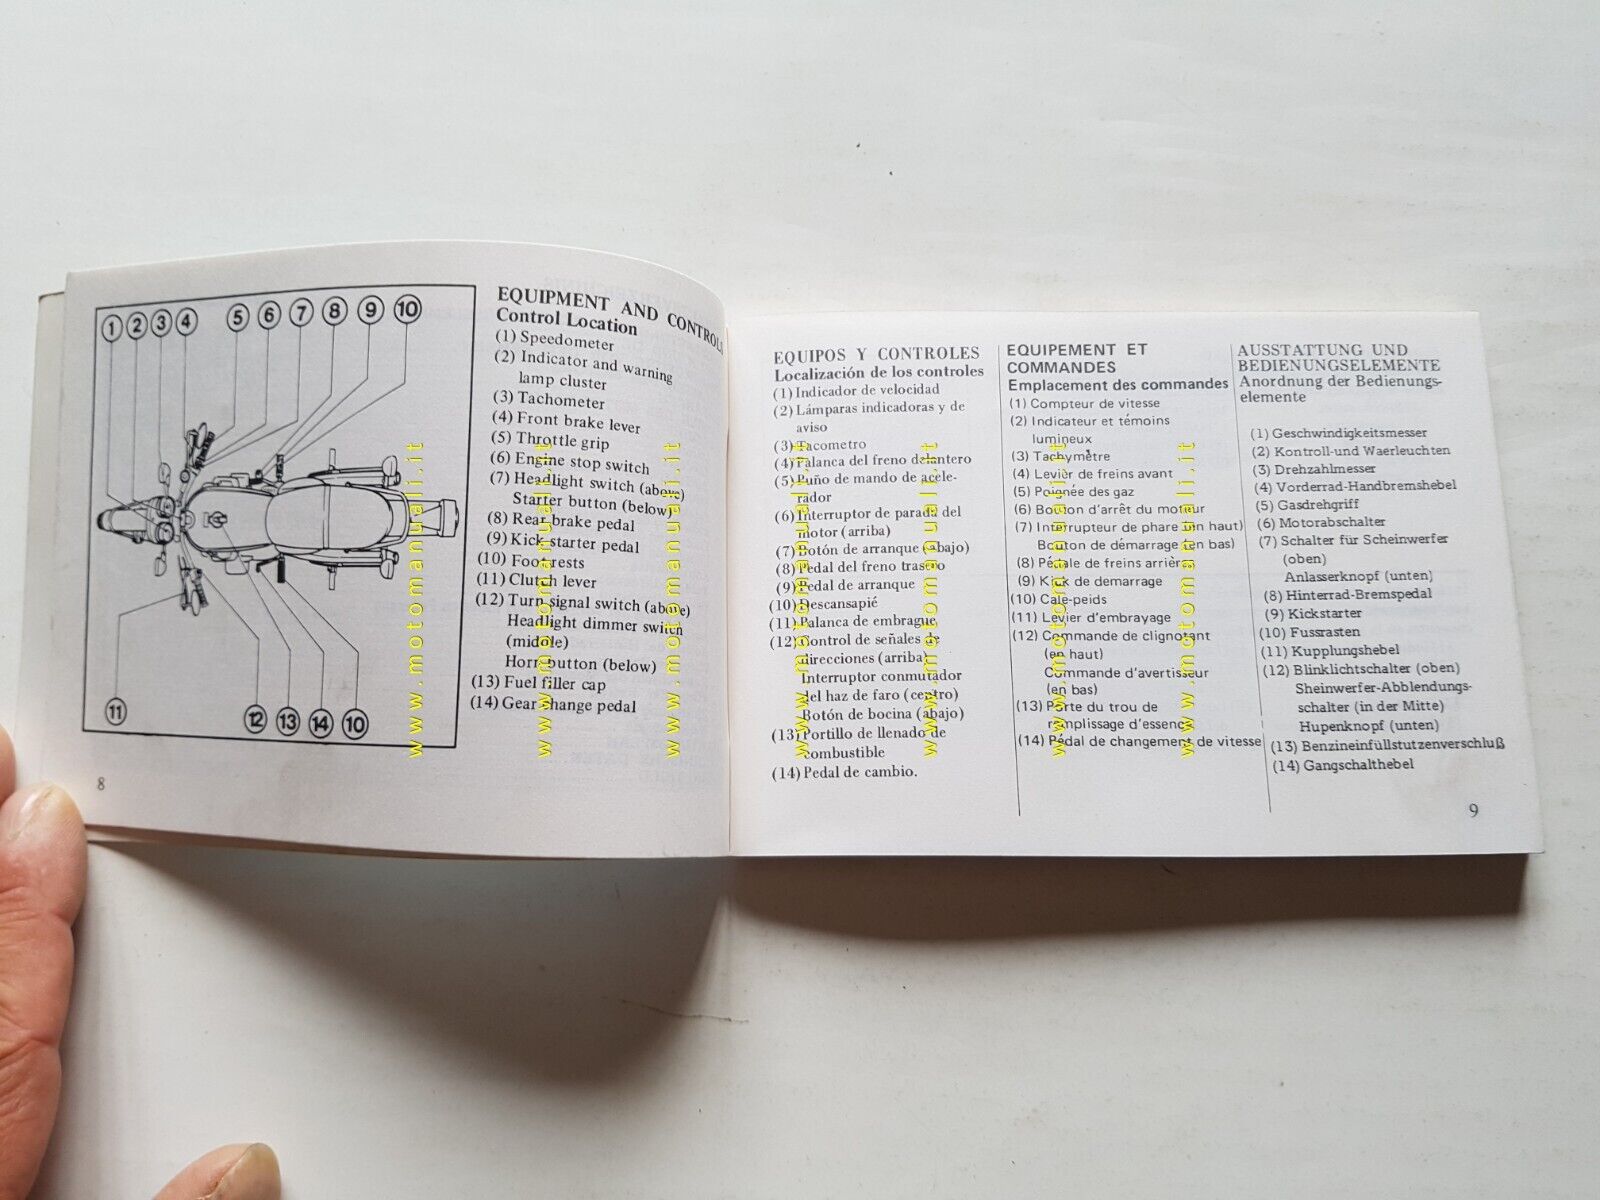 1 2 3 4 5 6 7 8 9 10
11 12 13 14 10
8
EQUIPMENT AND CONTROLS
Control Location
(1) Speedometer
(2) Indicator and warning
lamp cluster
(3) Tachometer
(4) Front brake lever
(5) Throttle grip
(6) Engine stop switch
(7) Headlight switch (above)
Starter button (below)
(8) Rear brake pedal
(9) Kick starter pedal
(10) Foot rests
(11) Clutch lever
(12) Turn signal switch (above)
Headlight dimmer switch
(middle)
Horn button (below)
(13) Fuel filler cap
(14) Gear change pedal
EQUIPOS Y CONTROLES
Localización de los controles
(1) Indicador de velocidad
(2) Lámparas indicadoras y de
aviso
(3) Tacometro
(4) Palanca del freno delantero
(5) Puño de mando de acele-
rador
(6) Interruptor de parada del
motor (arriba)
(7) Botón de arranque (abajo)
(8) Pedal del freno trasero
(9) Pedal de arranque
(10) Descansapié
(11) Palanca de embrague
(12) Control de señales de
direcciones (arriba)
Interruptor conmutador
del haz de faro (centro)
Botón de bocina (abajo)
(13) Portillo de llenado de
combustible
(14) Pedal de cambio.
EQUIPEMENT ET
COMMANDES
Emplacement des commandes
(1) Compteur de vitesse
(2) Indicateur et témoins
lumineux
(3) Tachymètre
(4) Levier de freins avant
(5) Poignée des gaz
(6) Bouton d'arrêt du moteur
(7) Interrupteur de phare (en haut)
Bouton de démarrage (en bas)
(8) Pédale de freins arrière
(9) Kick de demarrage
(10) Cale-peids
(11) Levier d'embrayage
(12) Commande de clignotant
(en haut)
Commande d'avertisseur
(en bas)
(13) Porte du trou de
remplissage d'essence
(14) Pédal de changement de vitesse
AUSSTATTUNG UND
BEDIENUNGSELEMENTE
Anordnung der Bedienungs-
elemente
(1) Geschwindigkeitsmesser
(2) Kontroll-und Waerleuchten
(3) Drehzahlmesser
(4) Vorderrad-Handbremshebel
(5) Gasdrehgriff
(6) Motorabschalter
(7) Schalter für Scheinwerfer
(oben)
Anlasserknopf (unten)
(8) Hinterrad-Bremspedal
(9) Kickstarter
(10) Fussrasten
(11) Kupplungshebel
(12) Blinklichtschalter (oben)
Sheinwerfer-Abblendungs-
schalter (in der Mitte)
Hupenknopf (unten)
(13) Benzineinfüllstutzenverschluß
(14) Gangschalthebel
9
www.motomanuali.it
www.motomanuali.it
www.motomanuali.it
www.motomanuali.it
www.motomanuali.it
www.motomanuali.it
www.motomanuali.it